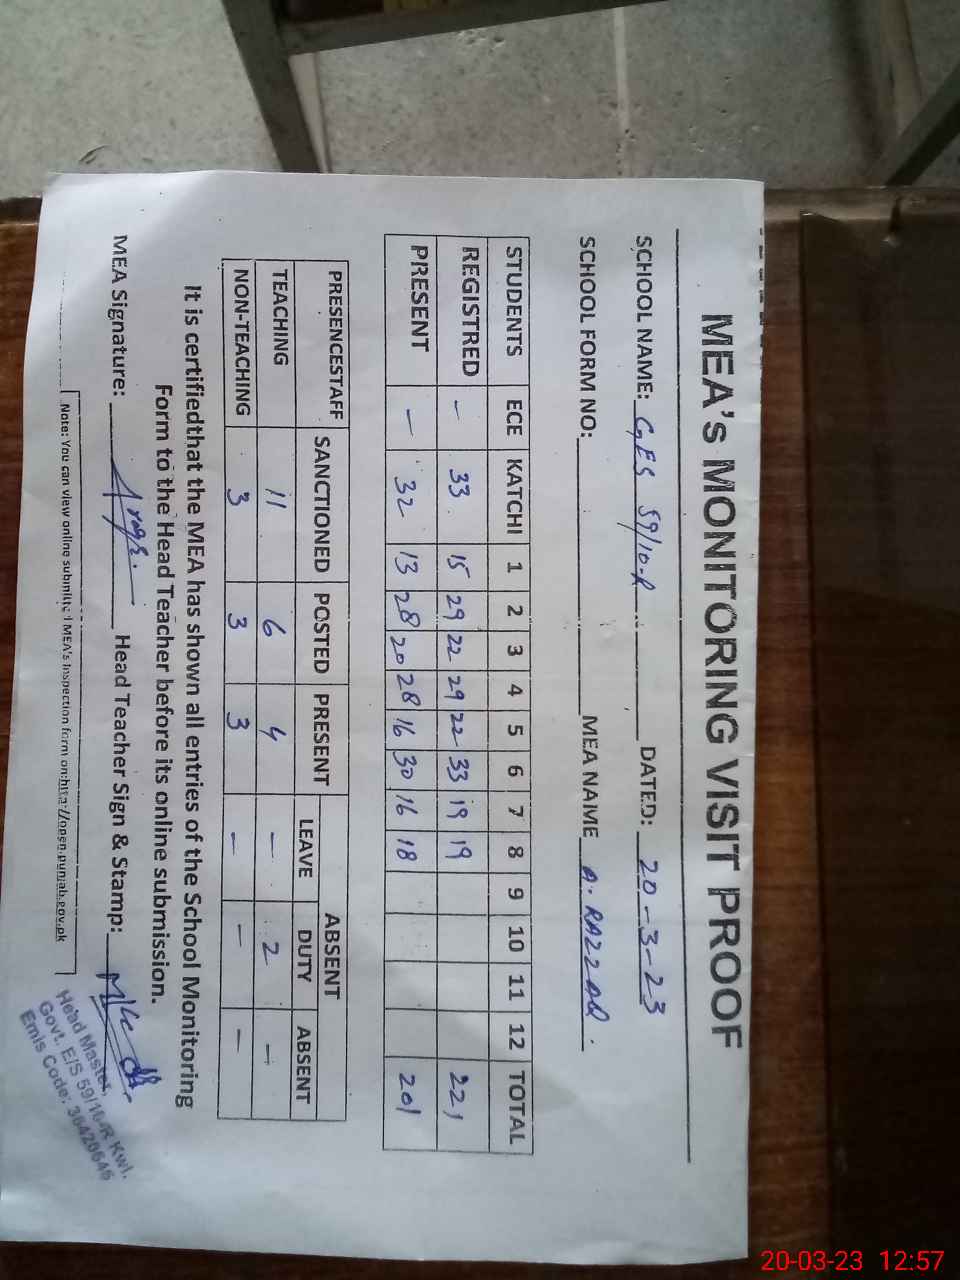 MEA's MONITORING VISIT PROOF
SCHOOL NAME: GES 59/10-R DATED: 20-3-23
SCHOOL FORM NO: MEA NAME A. RAZZAQ
STUDENTS ECE KATCHI 1 2 3 4 5 6 7 8 9 10 11 12 TOTAL
REGISTRED – 33 15 29 22 29 22 33 19 19 221
PRESENT – 32 13 28 20 28 16 30 16 18 201
PRESENCESTAFF SANCTIONED POSTED PRESENT ABSENT
LEAVE DUTY ABSENT
TEACHING 11 6 4 – 2 –
NON-TEACHING 3 3 3 – – –
It is certifiedthat the MEA has shown all entries of the School Monitoring
Form to the Head Teacher before its online submission.
MEA Signature: Head Teacher Sign & Stamp:
Head Master,
Govt. E/S 59/10-R Kwl.
Emis Code:
Note: You can view online submitted MEA's Inspection form on:http://open.punjab.gov.pk
20-03-23 12:57